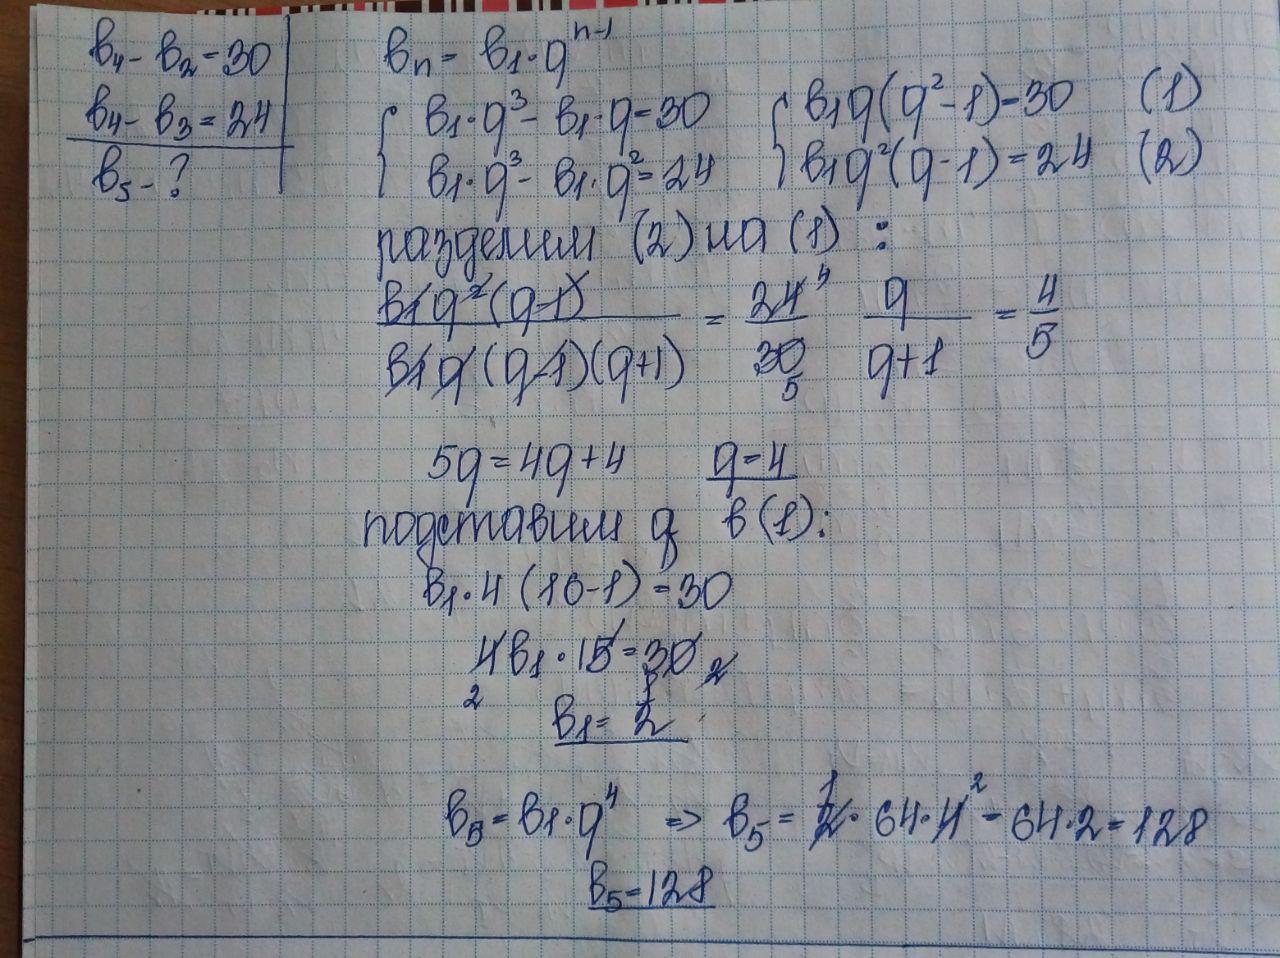 b₄ - b₂ = 30
b₄ - b₃ = 24
b₅ - ?
bₙ = b₁·qⁿ⁻¹
{ b₁·q³ - b₁·q = 30 { b₁q(q² - 1) = 30 (1)
b₁·q³ - b₁·q² = 24 b₁q²(q - 1) = 24 (2)
разделим (2) на (1) :
b₁q²(q-1) / b₁q(q-1)(q+1) = 24 4 / 30 5 q / q+1 = 4/5
5q = 4q + 4 q = 4
подставим q в (1):
b₁·4(16-1) = 30
4b₁·15 = 30 2
2
b₁ = 1/2
b₅ = b₁·q⁴ => b₅ = 1/2·64·4² = 64·2 = 128
b₅ = 128